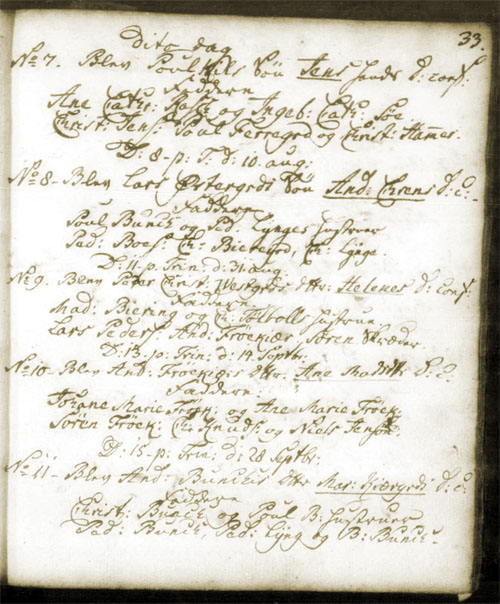 33.
Dito dag
No 7. Blev Poul Nils Søn Jens hands D: conf:
Faddere
Ane Cath: og Ingeb: Cath: Søe
Christ: Jens: Poul Ferregrd og Christ: Hammer.
D: 8-p: T: d: 10 aug:
No 8- Blev Lars Østergrds Søn And: Chrens D: C:-
Faddere
Poul Bunchs og Ped: Lynges hustruer
Ped: Boes: Ch: Bieregrd, Ch: Lynge.
D: 11-p: Trin: d: 31 aug.
No 9. Blev Peter Christ: Westgrds dttr: Helenes D: conf:
Faddere
Mad: Biering og C: hustrue
Lars Peders: And: Froekiær Søren Skræder.
D: 13-p: Trin: d: 14 Septbr:
No 10- Blev And: Froekiærs dttr: Ane D: C:
Faddere:
Johane Marie Froek: og Ane Marie Froek:
Søren Froek: Ch: Knuds: og Niels Jensøn.
D: 15-p: Trin: d: 28 Septbr:
No 11- Blev And: Bunchs dttr Mar: Kiærgrds D: C:
Faddere
Christ: Bunch og Poul B: hustruer
Ped: Bunch, Ped: Lyng og B: Bunch-